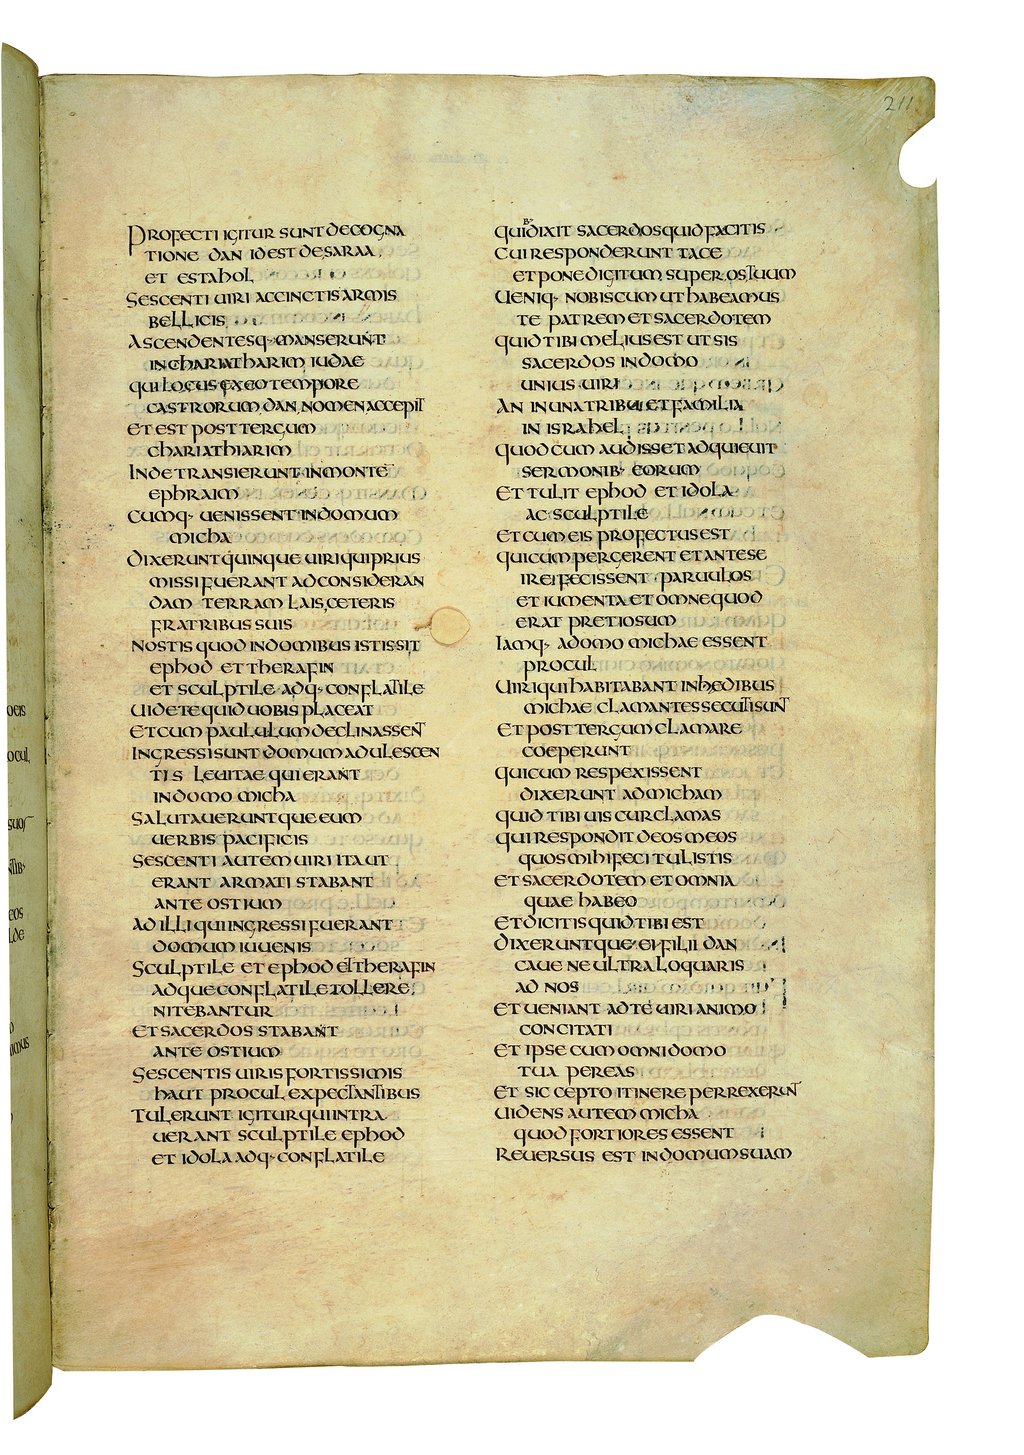 211
PROFECTI IGITUR SUNT DE COGNA
TIONE DAN ID EST DE SARAA
ET ESTAHOL
SESCENTI UIRI ACCINCTIS ARMIS
BELLICIS
ASCENDENTESQ· MANSERUNT
IN CHARIATHARIM IUDAE
QUI LOCUS EX EO TEMPORE
CASTRORUM DAN NOMEN ACCEPIT
ET EST POST TERGUM
CHARIATHIARIM
INDE TRANSIERUNT IN MONTE
EPHRAIM
CUMQ· UENISSENT IN DOMUM
MICHA
DIXERUNT QUINQUE UIRI QUI PRIUS
MISSI FUERANT AD CONSIDERAN
DAM TERRAM LAIS CETERIS
FRATRIBUS SUIS
NOSTIS QUOD IN DOMIBUS ISTIS SIT
EPHOD ET THERAFIN
ET SCULPTILE ADQ· CONFLATILE
UIDETE QUID UOBIS PLACEAT
ET CUM PAULULUM DECLINASSENT
INGRESSI SUNT DOMUM ADULESCEN
TIS LEUITAE QUI ERANT
IN DOMO MICHA
SALUTAUERUNTQUE EUM
UERBIS PACIFICIS
SESCENTI AUTEM UIRI ITA UT
ERANT ARMATI STABANT
ANTE OSTIUM
AD ILLI QUI INGRESSI FUERANT
DOMUM IUUENIS
SCULPTILE ET EPHOD ET THERAFIN
ADQUE CONFLATILE TOLLERE
NITEBANTUR
ET SACERDOS STABANT
ANTE OSTIUM
SESCENTIS UIRIS FORTISSIMIS
HAUT PROCUL EXPECTANTIBUS
TULERUNT IGITUR QUI INTRA
UERANT SCULPTILE EPHOD
ET IDOLA ADQ· CONFLATILE
QUIB· DIXIT SACERDOS QUID FACITIS
CUI RESPONDERUNT TACE
ET PONE DIGITUM SUPER OS TUUM
UENIQ· NOBISCUM UT HABEAMUS
TE PATREM ET SACERDOTEM
QUID TIBI MELIUS EST UT SIS
SACERDOS IN DOMO
UNIUS UIRI
AN IN UNA TRIBU ET FAMILIA
IN ISRAHEL
QUOD CUM AUDISSET ADQUIEUIT
SERMONIB· EORUM
ET TULIT EPHOD ET IDOLA
AC SCULPTILE
ET CUM EIS PROFECTUS EST
QUI CUM PERGERENT ET ANTE SE
IRE FECISSENT PARUULOS
ET IUMENTA ET OMNE QUOD
ERAT PRETIOSUM
IAMQ· A DOMO MICHAE ESSENT
PROCUL
UIRI QUI HABITABANT IN HEDIBUS
MICHAE CLAMANTES SECUTI SUNT
ET POST TERGUM CLAMARE
COEPERUNT
QUI CUM RESPEXISSENT
DIXERUNT AD MICHAM
QUID TIBI UIS CUR CLAMAS
QUI RESPONDIT DEOS MEOS
QUOS MIHI FECI TULISTIS
ET SACERDOTEM ET OMNIA
QUAE HABEO
ET DICITIS QUID TIBI EST
DIXERUNTQUE EI FILII DAN
CAUE NE ULTRA LOQUARIS
AD NOS
ET UENIANT AD TE UIRI ANIMO
CONCITATI
ET IPSE CUM OMNI DOMO
TUA PEREAS
ET SIC CEPTO ITINERE PERREXERUNT
UIDENS AUTEM MICHA
QUOD FORTIORES ESSENT
REUERSUS EST IN DOMUM SUAM